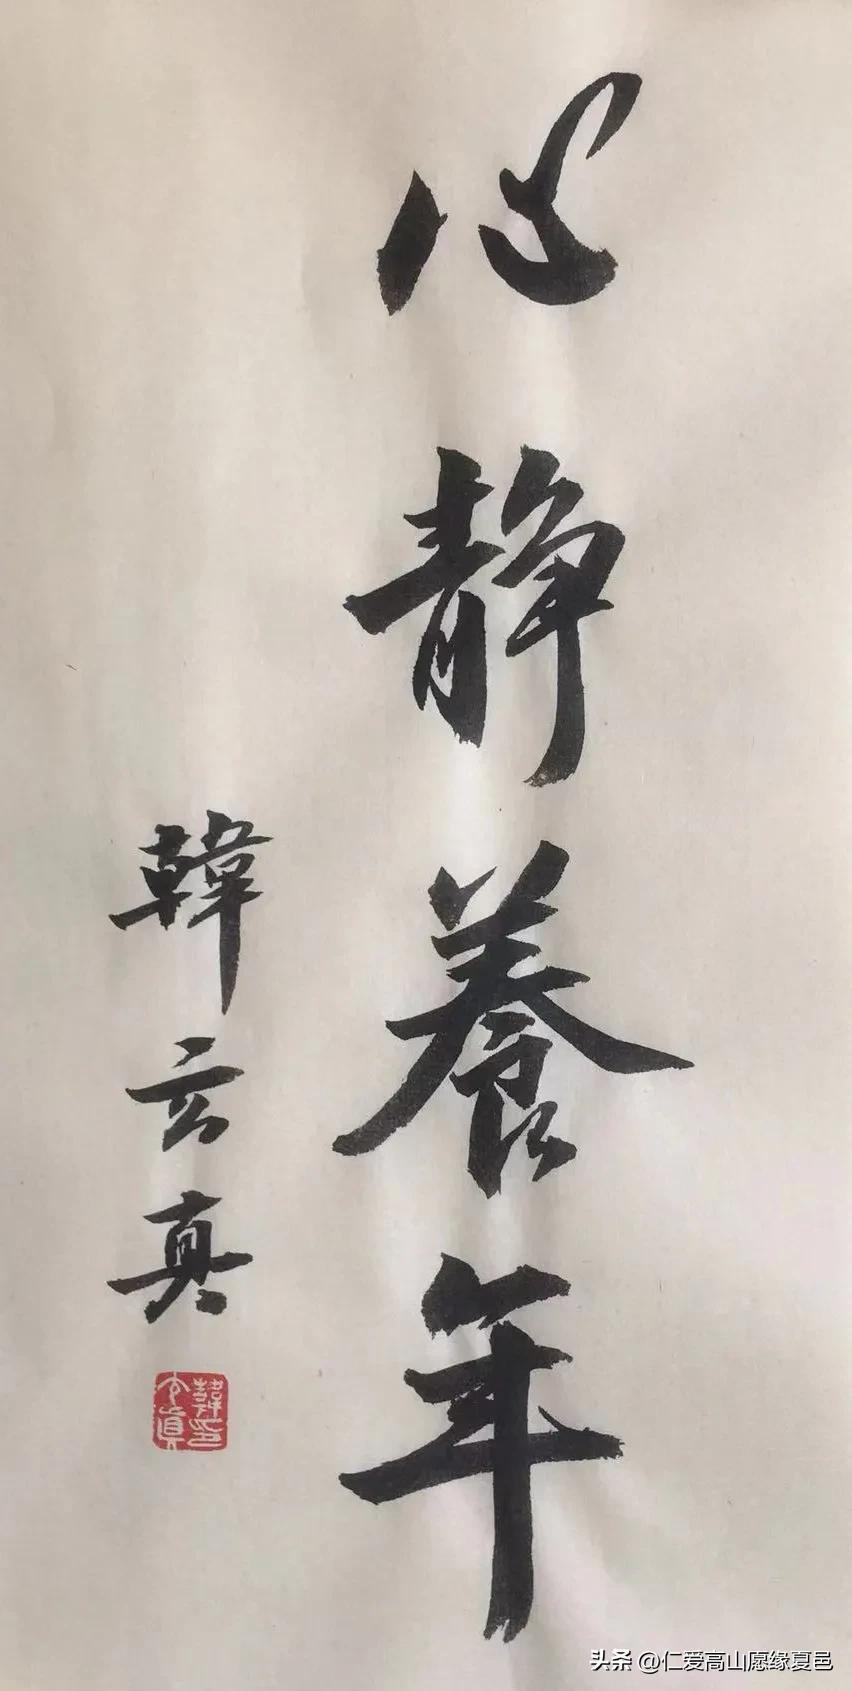 心静養年
韓玄真
韓印玄真
头条 @仁爱高山愿缘夏邑